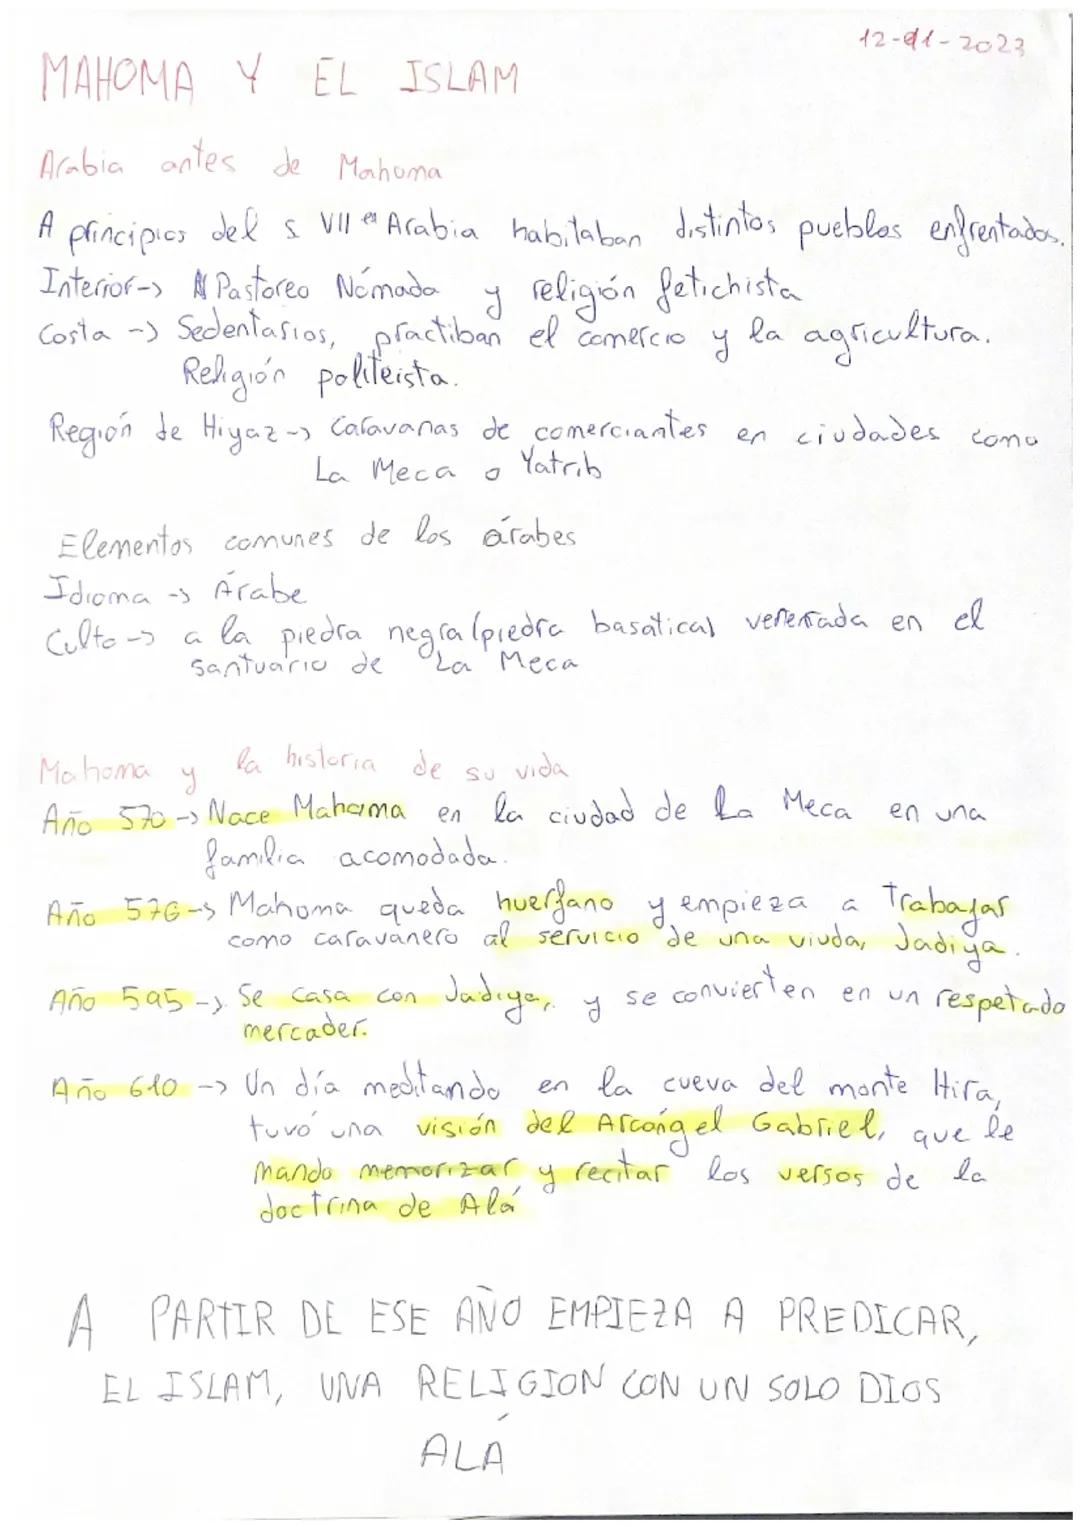 12-01-2023
MAHOMA Y EL ISLAM
Arabia antes de Mahoma
A principios del s VII en Arabia habitaban distintos pueblos enfrentados.
Interior-> Pastoreo Nómada y religión fetichista
Costa -> Sedentarios, practiban el comercio y la agricultura.
Religión politeista.
Región de Hiyaz-> Caravanas de comerciantes en ciudades como
La Meca o Yatrib
Elementos comunes de los árabes
Idioma -> Árabe
Culto -> a la piedra negra (piedra basática) venerada en el
santuario de La Meca
Mahoma y la historia de su vida
Año 570 -> Nace Mahoma en la ciudad de La Meca en una
familia acomodada.
Año 576 -> Mahoma queda huerfano y empieza a Trabajar
como caravanero al servicio de una viuda, Jadiya.
Año 595 -> Se casa con Jadiya, y se convierten en un respetado
mercader.
Año 610 -> Un día meditando en la cueva del monte Hira,
tuvo una visión del Arcángel Gabriel, que le
mando memorizar y recitar los versos de la
doctrina de Alá
A PARTIR DE ESE AÑO EMPIEZA A PREDICAR,
EL ISLAM, UNA RELIGION CON UN SOLO DIOS
ALÁ